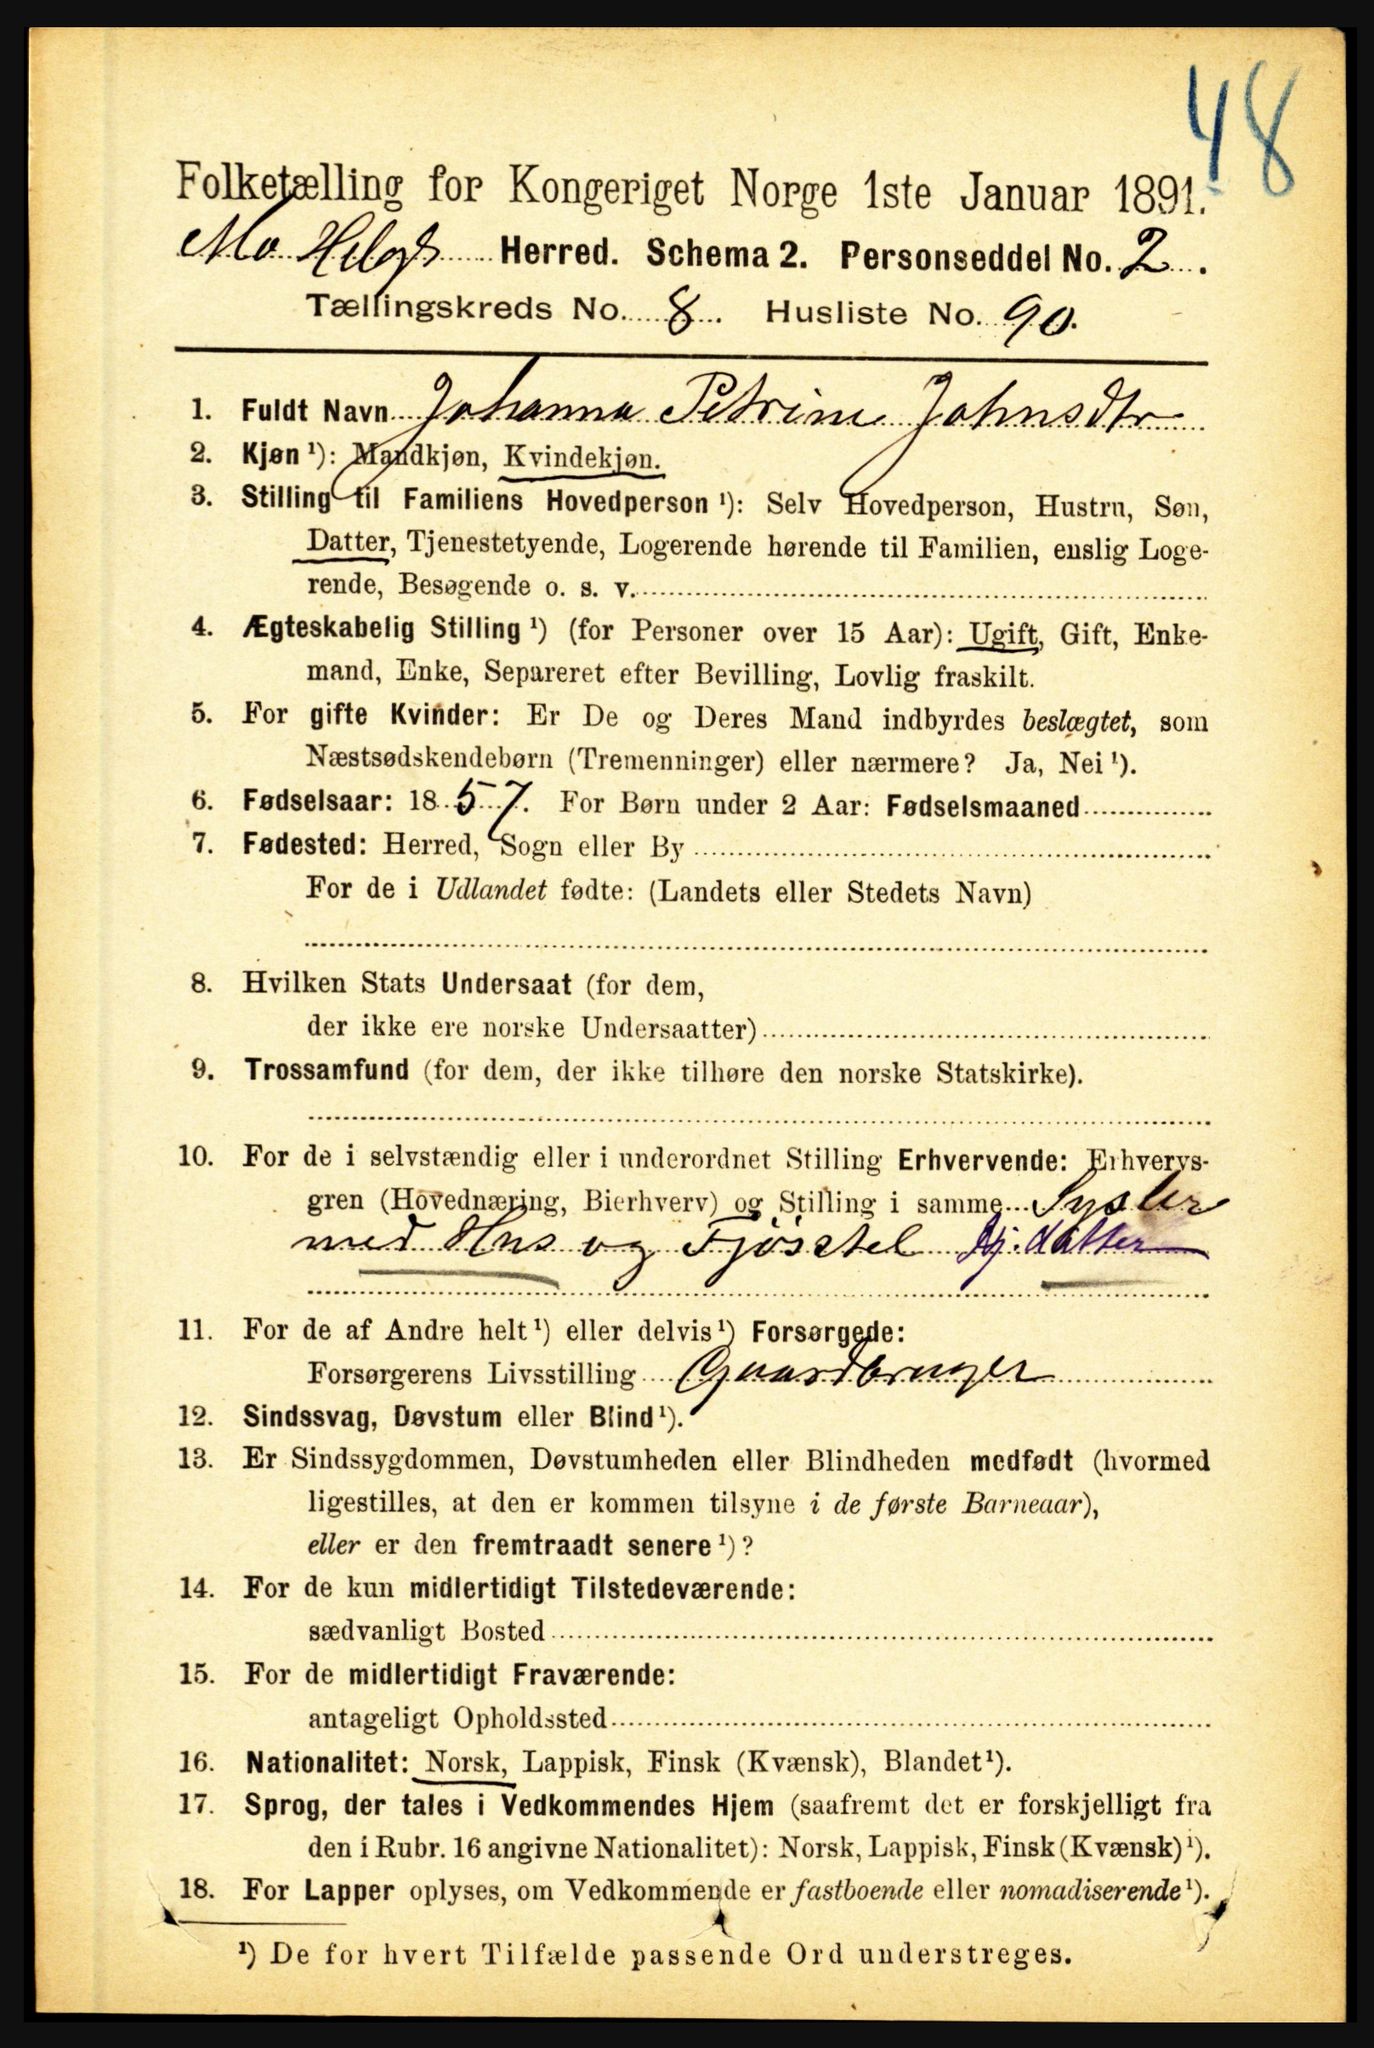 48
Folketælling for Kongeriget Norge 1ste Januar 1891.
Mo Helgl Herred. Schema 2. Personseddel No. 2.
Tællingskreds No. 8. Husliste No. 90.
1. Fuldt Navn Johanna Petrine Johnsdtr
2. Kjøn ¹): Mandkjøn, Kvindekjøn.
3. Stilling til Familiens Hovedperson ¹): Selv Hovedperson, Hustru, Søn,
Datter, Tjenestetyende, Logerende hørende til Familien, enslig Loge-
rende, Besøgende o. s. v.
4. Ægteskabelig Stilling ¹) (for Personer over 15 Aar): Ugift, Gift, Enke-
mand, Enke, Separeret efter Bevilling, Lovlig fraskilt.
5. For gifte Kvinder: Er De og Deres Mand indbyrdes beslægtet, som
Næstsødskendebørn (Tremenninger) eller nærmere? Ja, Nei ¹).
6. Fødselsaar: 1857. For Børn under 2 Aar: Fødselsmaaned
7. Fødested: Herred, Sogn eller By
For de i Udlandet fødte: (Landets eller Stedets Navn)
8. Hvilken Stats Undersaat (for dem,
der ikke ere norske Undersaatter)
9. Trossamfund (for dem, der ikke tilhøre den norske Statskirke).
10. For de i selvstændig eller i underordnet Stilling Erhvervende: Erhvervs-
gren (Hovednæring, Bierhverv) og Stilling i samme Sysler
med Hus og Fjøsstel Hj. datter
11. For de af Andre helt ¹) eller delvis ¹) Forsørgede:
Forsørgerens Livsstilling Gaardbruger
12. Sindssvag, Døvstum eller Blind ¹).
13. Er Sindssygdommen, Døvstumheden eller Blindheden medfødt (hvormed
ligestilles, at den er kommen tilsyne i de første Barneaar),
eller er den fremtraadt senere ¹)?
14. For de kun midlertidigt Tilstedeværende:
sædvanligt Bosted
15. For de midlertidigt Fraværende:
antageligt Opholdssted
16. Nationalitet: Norsk, Lappisk, Finsk (Kvænsk), Blandet ¹).
17. Sprog, der tales i Vedkommendes Hjem (saafremt det er forskjelligt fra
den i Rubr. 16 angivne Nationalitet): Norsk, Lappisk, Finsk (Kvænsk) ¹).
18. For Lapper oplyses, om Vedkommende er fastboende eller nomadiserende ¹).
¹) De for hvert Tilfælde passende Ord understreges.